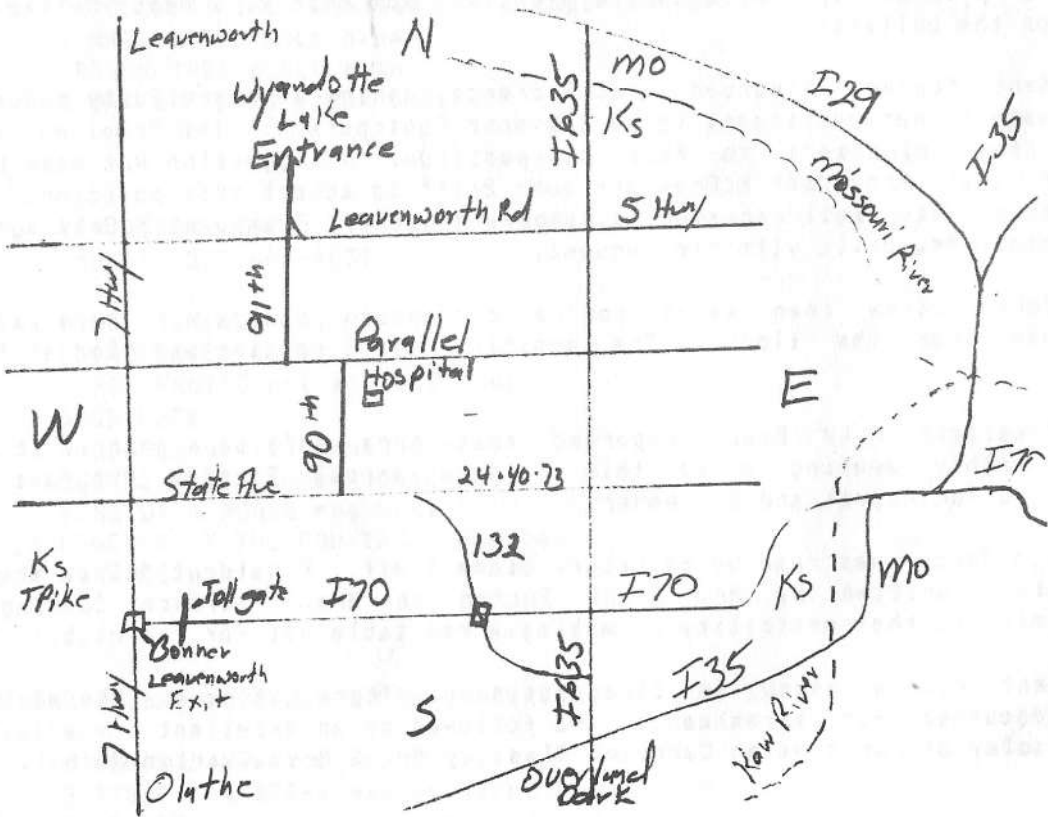 Leavenworth
N
Wyandotte
Lake
Entrance
I 635
MO
Ks
I 29
I-35
Missouri River
Leavenworth Rd
5 Hwy
7 Hwy
91th
Parallel
Hospital
W
E
90th
State Ave
24-40-73
I70
Ks
TPike
Tollgate
I70
132
I70
Ks
MO
Bonner
Leavenworth
Exit
7 Hwy
S
I-635
I35
Kaw River
Olathe
Overland
Park